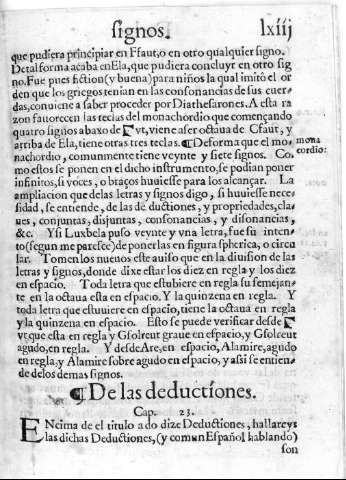 signos. lxiij
que pudiera principiar en Ffaut, o en otro qualquier signo.
De tal forma acaba en Ela, que pudiera concluyr en otro sig
no. Fue pues fiction (y buena) para niños la qual imitò el or
den que los griegos tenian en las consonancias de sus cuer-
das, conuiene a saber proceder por Diathesarones. A esta ra
zon fauorecen las teclas del monachordio que començando
quatro signos abaxo de Γ vt, viene a ser octaua de Cfaut, y
arriba de Ela, tiene otras tres teclas. ¶ De forma que el mo-
nachordio, comunmente tiene veynte y siete signos. Co-
mo estos se ponen en el dicho instrumento, se podian poner
infinitos, si voces, o braços huuiesse para los alcançar. La
ampliacion que de las letras y signos digo, si huuiesse neces-
sidad, se entiende, de las deductiones, y propriedades, cla-
ues, conjuntas, disjuntas, consonancias, y disonancias,
&c. Y si Luxbela puso veynte y vna letra, fue su inten-
to (segun me paresce) de ponerlas en figura spherica, o circu
lar. Tomen los nueuos este auiso que en la diuision de las
letras y signos, donde dixe estar los diez en regla y los diez
en espacio. Toda letra que estubiere en regla su semejan-
te en la octaua esta en espacio. Y la quinzena en regla. Y
toda letra que estuuiere en espacio, tiene la octaua en regla
y la quinzena en espacio. Esto se puede verificar desde Γ
vt que esta en regla y Gsolreut graue en espacio, y Gsolreut
agudo, en regla. Y desde Are, en espacio, Alamire, agudo
en regla: y Alamire sobre agudo en espacio, y assi se entien-
de de los demas signos.
mona
cordio:
¶ De las deductiones.
Cap. 23.
ENcima de el titulo a do dize Deductiones, hallareys
las dichas Deductiones, (y comun Español hablando)
son